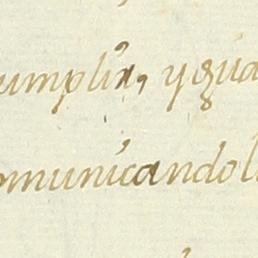 umplir, y gua
omunicandol